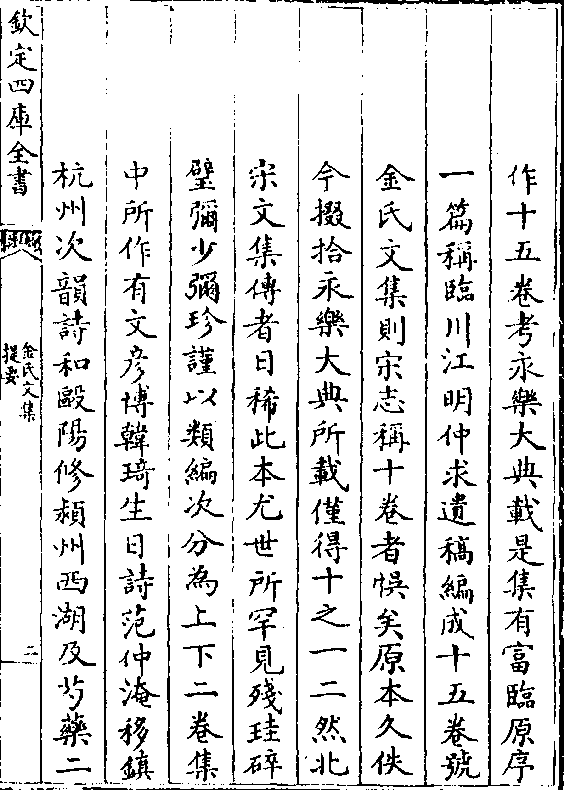 作十五卷考永樂大典載是集有富臨原序
一篇稱臨川江明仲求遺稿編成十五卷號
金氏文集則宋志稱十卷者悞矣原本久佚
今掇拾永樂大典所載僅得十之一二然北
宋文集傳者日稀此本尤世所罕見殘珪碎
璧彌少彌珍謹以類編次分為上下二卷集
中所作有文彦博韓琦生日詩范仲淹移鎮
杭州次韻詩和歐陽修潁州西湖及芍藥二
欽定四庫全書
金氏文集
提要
二